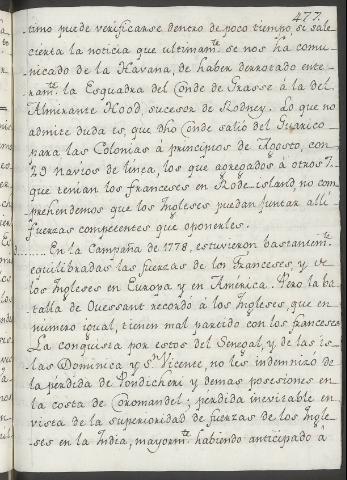 477.
timo puede verificarse dentro de poco tiempo, si sale
cierta la noticia que ultimam.te se nos ha comu-
nicado de la Havana, de haber derrotado ente-
ram.te la Esquadra del Conde de Grasse á la del
Almirante Hood, sucesor de Rodney. Lo que no
admite duda es, que dho Conde salió del Guarico
para las Colonias á principios de Agosto, con
29 navios de linea, los que agregados á otros 7.
que tenian los franceses en Rode-island, no com-
prehendemos que los Ingleses puedan juntar alli
fuerzas competentes que oponerles.
En la Campaña de 1778, estuvieron bastantem.te
equilibradas las fuerzas de los Franceses, y de
los Ingleses en Europa y en America. Pero la ba-
talla de Ouessant recordó á los Ingleses, que en
número igual, tienen mal partido con los franceses.
La conquista por estos del Senegal, y de las is-
las Dominica y S.n Vicente, no les indemnizó de
la perdida de Pondicheri y demas posesiones en
la costa de Coromandel; perdida inevitable en
vista de la superioridad de fuerzas de los Ingle-
ses en la India, mayorm.te habiendo anticipado á